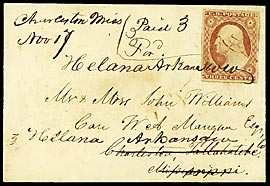 Charleston Miss
Nov 17
Paid 3
U.S. POSTAGE
THREE CENTS
Helana Arkansaw
Mr & Mrs John Williams
Care W. A. Mangum Esqr
Helana Arkansaw
Charleston, Tallahatchie Co
Mississippi